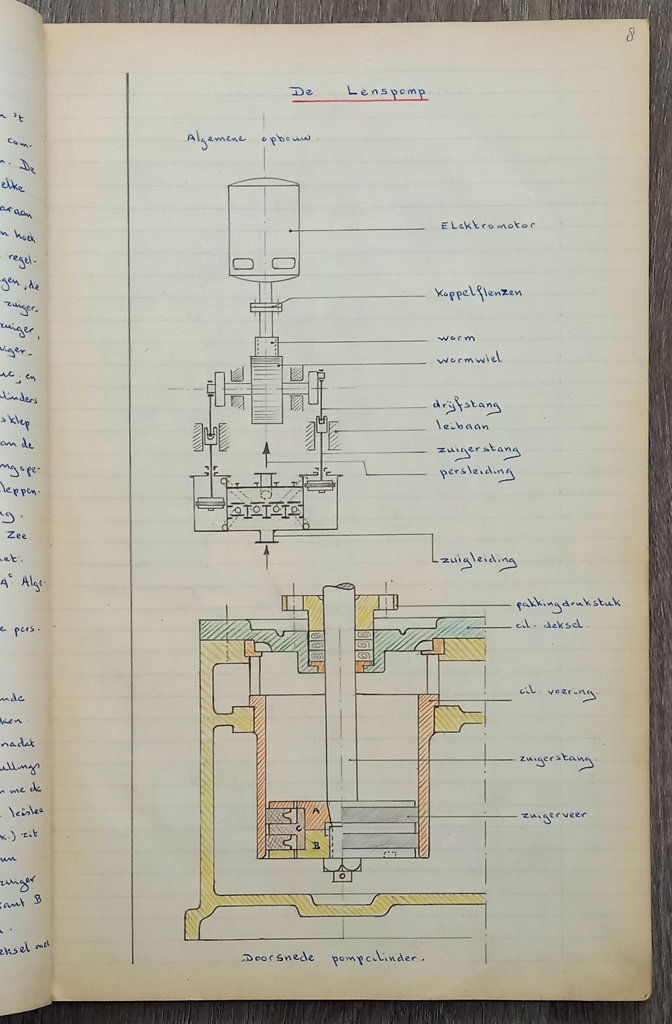 8
De Lenspomp
Algemene opbouw.
Elektromotor
koppelflenzen
worm
wormwiel
drijfstang
leibaan
zuigerstang
persleiding
zuigleiding
pakkingdrukstuk
cil. deksel
cil. voering.
zuigerstang
zuigerveer
A
C
B
Doorsnede pompcilinder.
n 't
com-
n. De
elke
araan
n hoek
regel-
gen, de
zuiger-
zuiger,
uiger-
en
linders
sklep
an de
leppen-
ng.
Zee
et:
Alge-
e pers-
nde
ken
nadat
ullings
zit
un
zuiger
kant B
eksel met